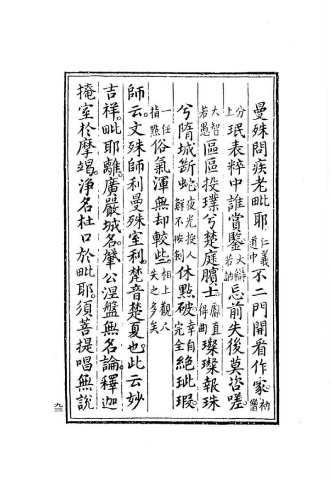 曼殊問疾老毗耶仁義道中不二門開看作家衲僧
分上珉表粹中誰賞鑒大辯若訥忌前失後莫咨嗟
大智若愚區區投璞兮楚庭臏士廉直佯曲璨璨報珠
兮隋城斷蛇夜光投人鮮不按劍休點破幸自完全絕玼瑕
一任指點俗氣渾無却較些相上觀人失之多矣
師云。文殊師利曼殊室利。楚音楚夏也。此云妙
吉祥。毗耶離廣嚴城名。肇公涅盤無名論。釋迦
掩室於摩竭。淨名杜口於毗耶。須菩提唱無說
九三